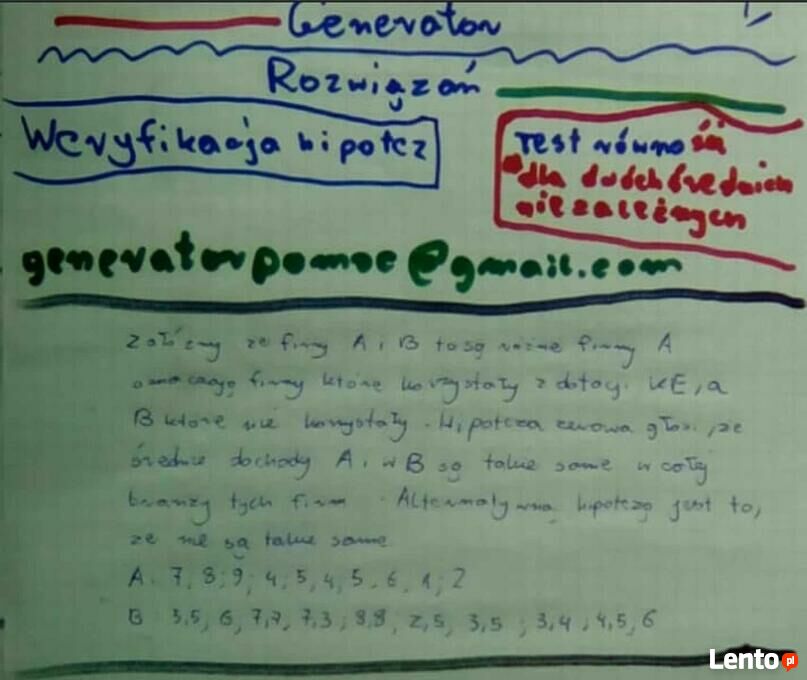 Generator
Rozwiązań
Weryfikacja hipotez
Test równości
dla dwóch średnich
niezależnych
generatorpomoc@gmail.com
Załóżmy że firmy A i B to są różne firmy A
oznaczają firmy które korzystały z dotacji UE, a
B które nie korzystały. Hipoteza zerowa głosi, że
średnie dochody A i w B są takie same w całej
branży tych firm. Alternatywną hipotezą jest to,
że nie są takie same
A. 7, 8; 9; 4; 5, 4, 5, 6, 1; 2
B 3,5; 6, 7,7, 7,3; 8,8, 2,5, 3,5; 3,4; 4,5, 6
Lento.pl